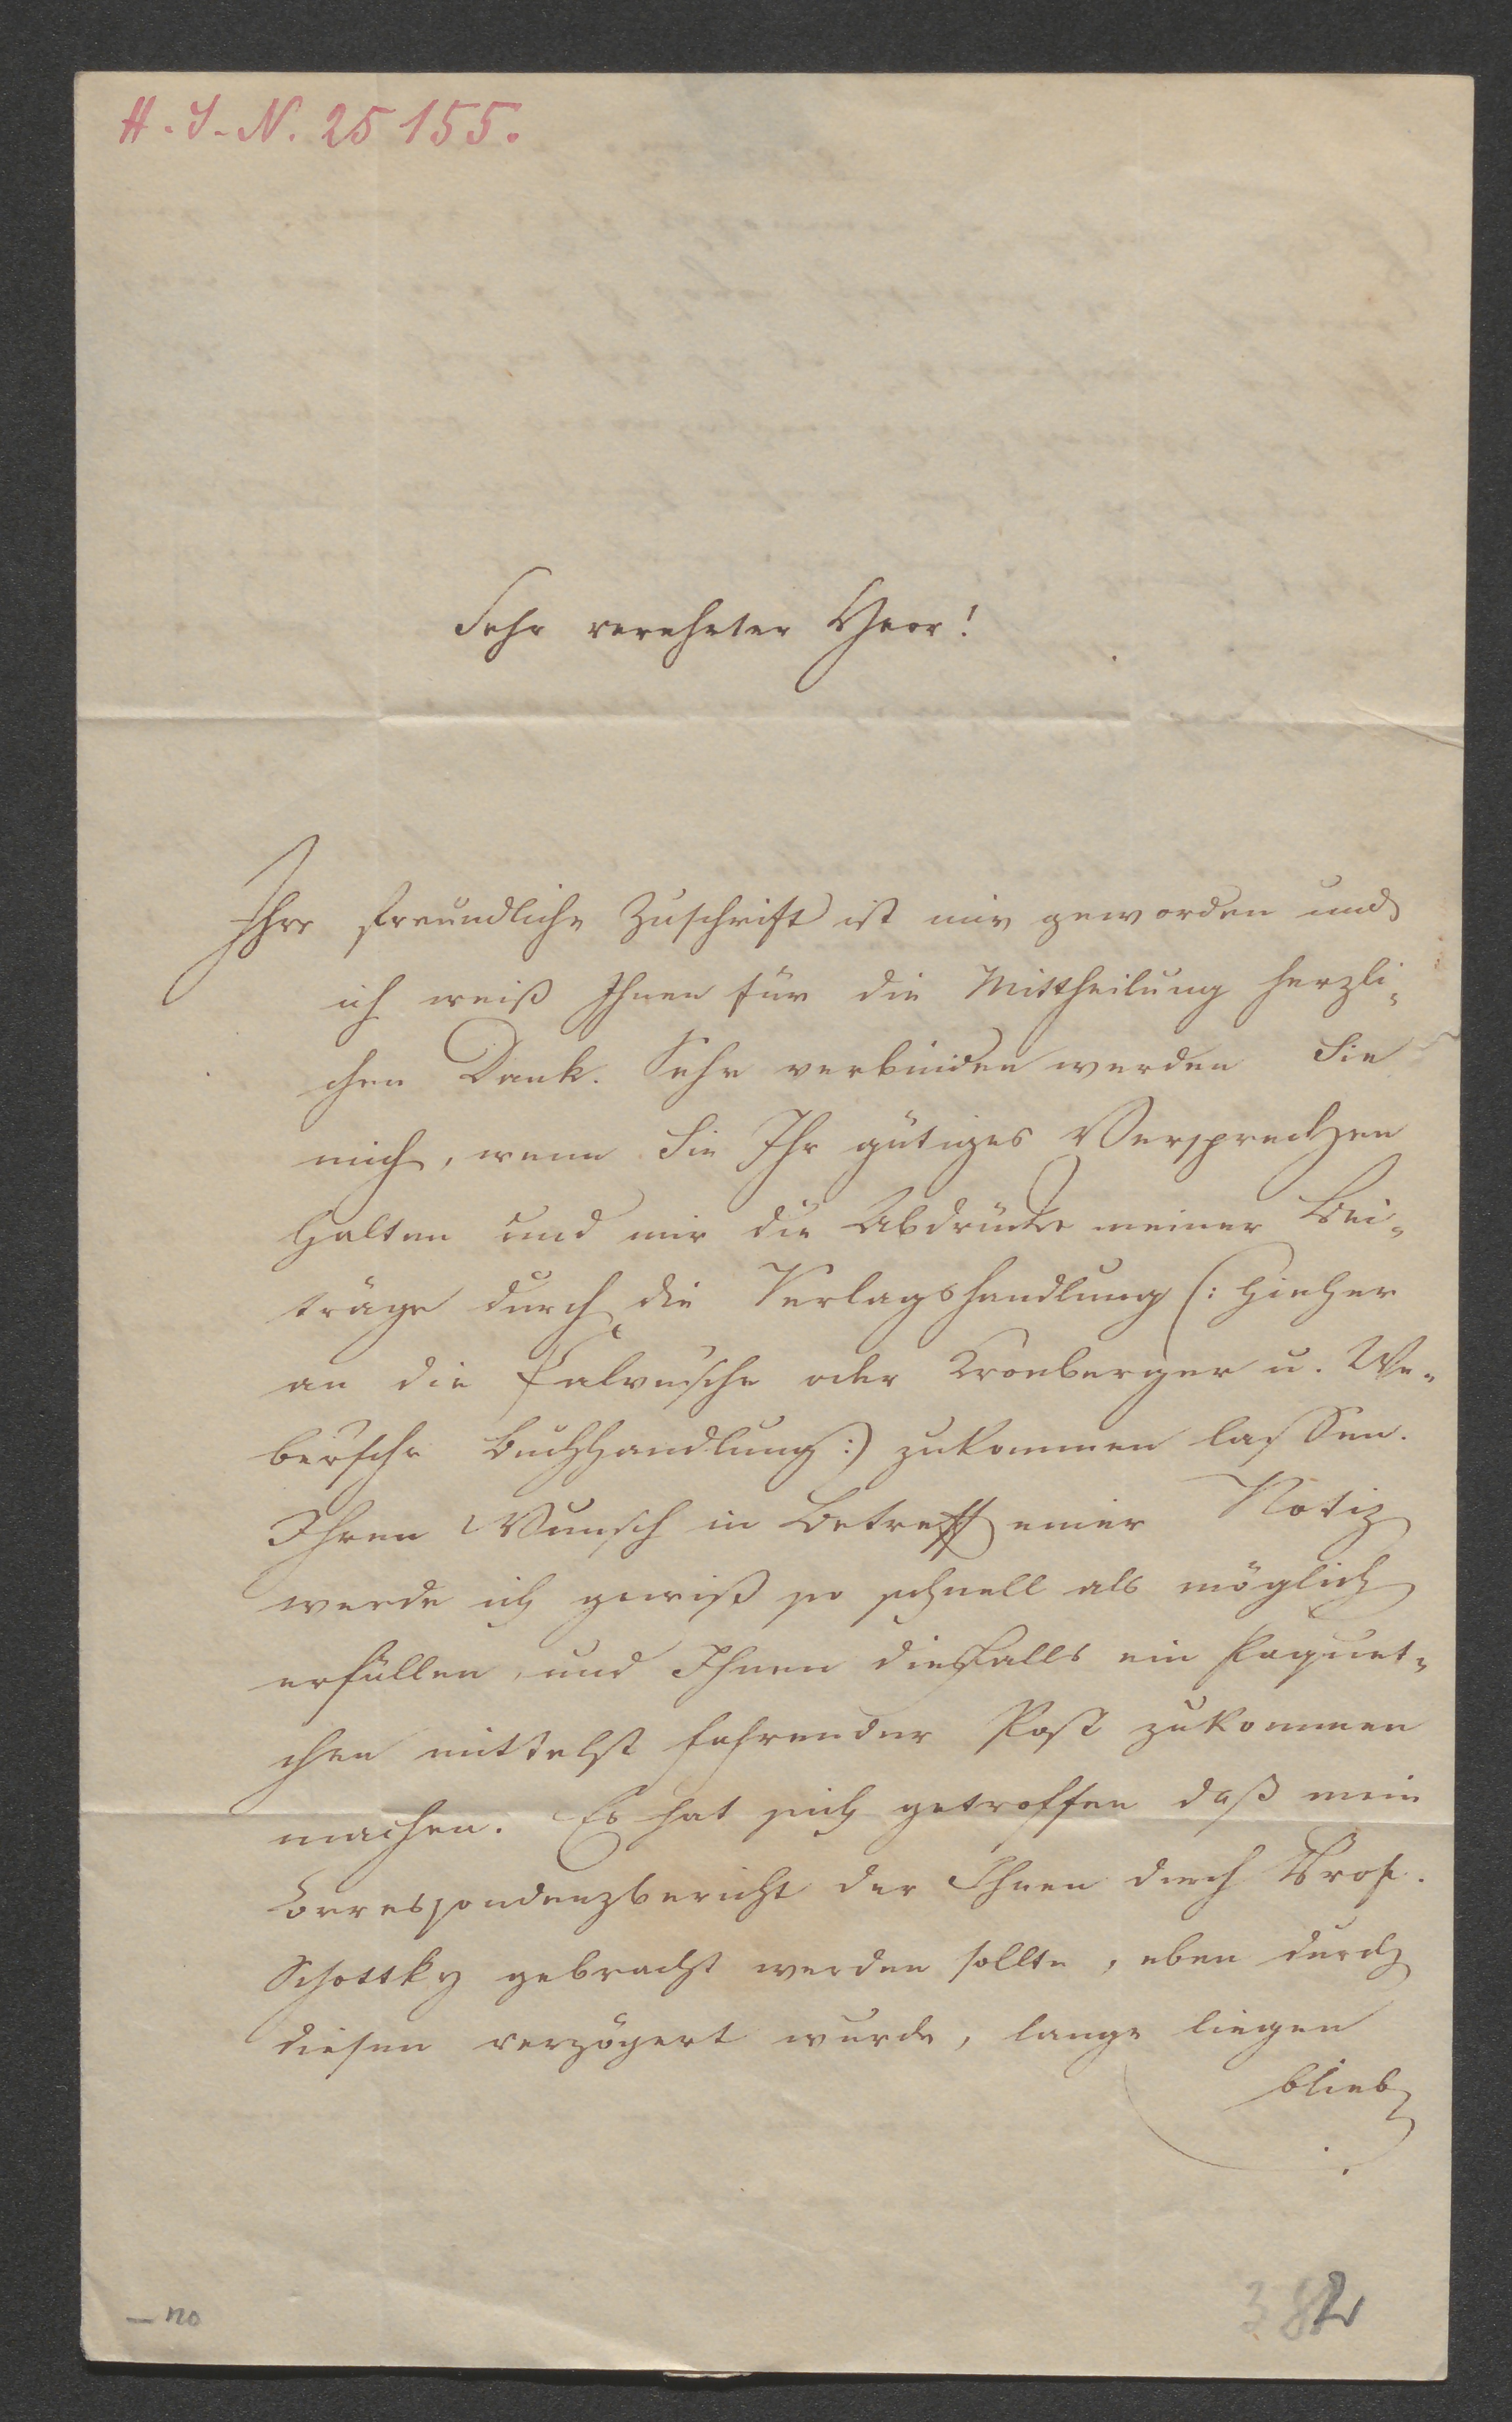 H.I.N. 25155.
Sehr verehrter Herr!
Ihre freundliche Zuschrift ist mir geworden und
ich weiß Ihnen für die Mittheilung herzli-
chen Dank. Sehr verbinden werden Sie
mich, wenn Sie Ihr gütiges Versprechen
halten und mir die Abdrücke meiner Bei-
träge durch die Verlagshandlung (: hieher
an die Calve'sche oder Kronberger u. We-
ber'sche Buchhandlung :) zukommen lassen.
Ihren Wunsch in Betreff einer Notiz
werde ich gewiß so schnell als möglich
erfüllen, und Ihnen dießfalls ein Paquet-
chen mittelst fahrender Post zukommen
machen. Es hat sich getroffen daß mein
Correspondenzbericht der Ihnen durch Prof.
Schottky gebracht werden sollte, eben durch
diesen verzögert wurde, lange liegen
blieb
382
— no